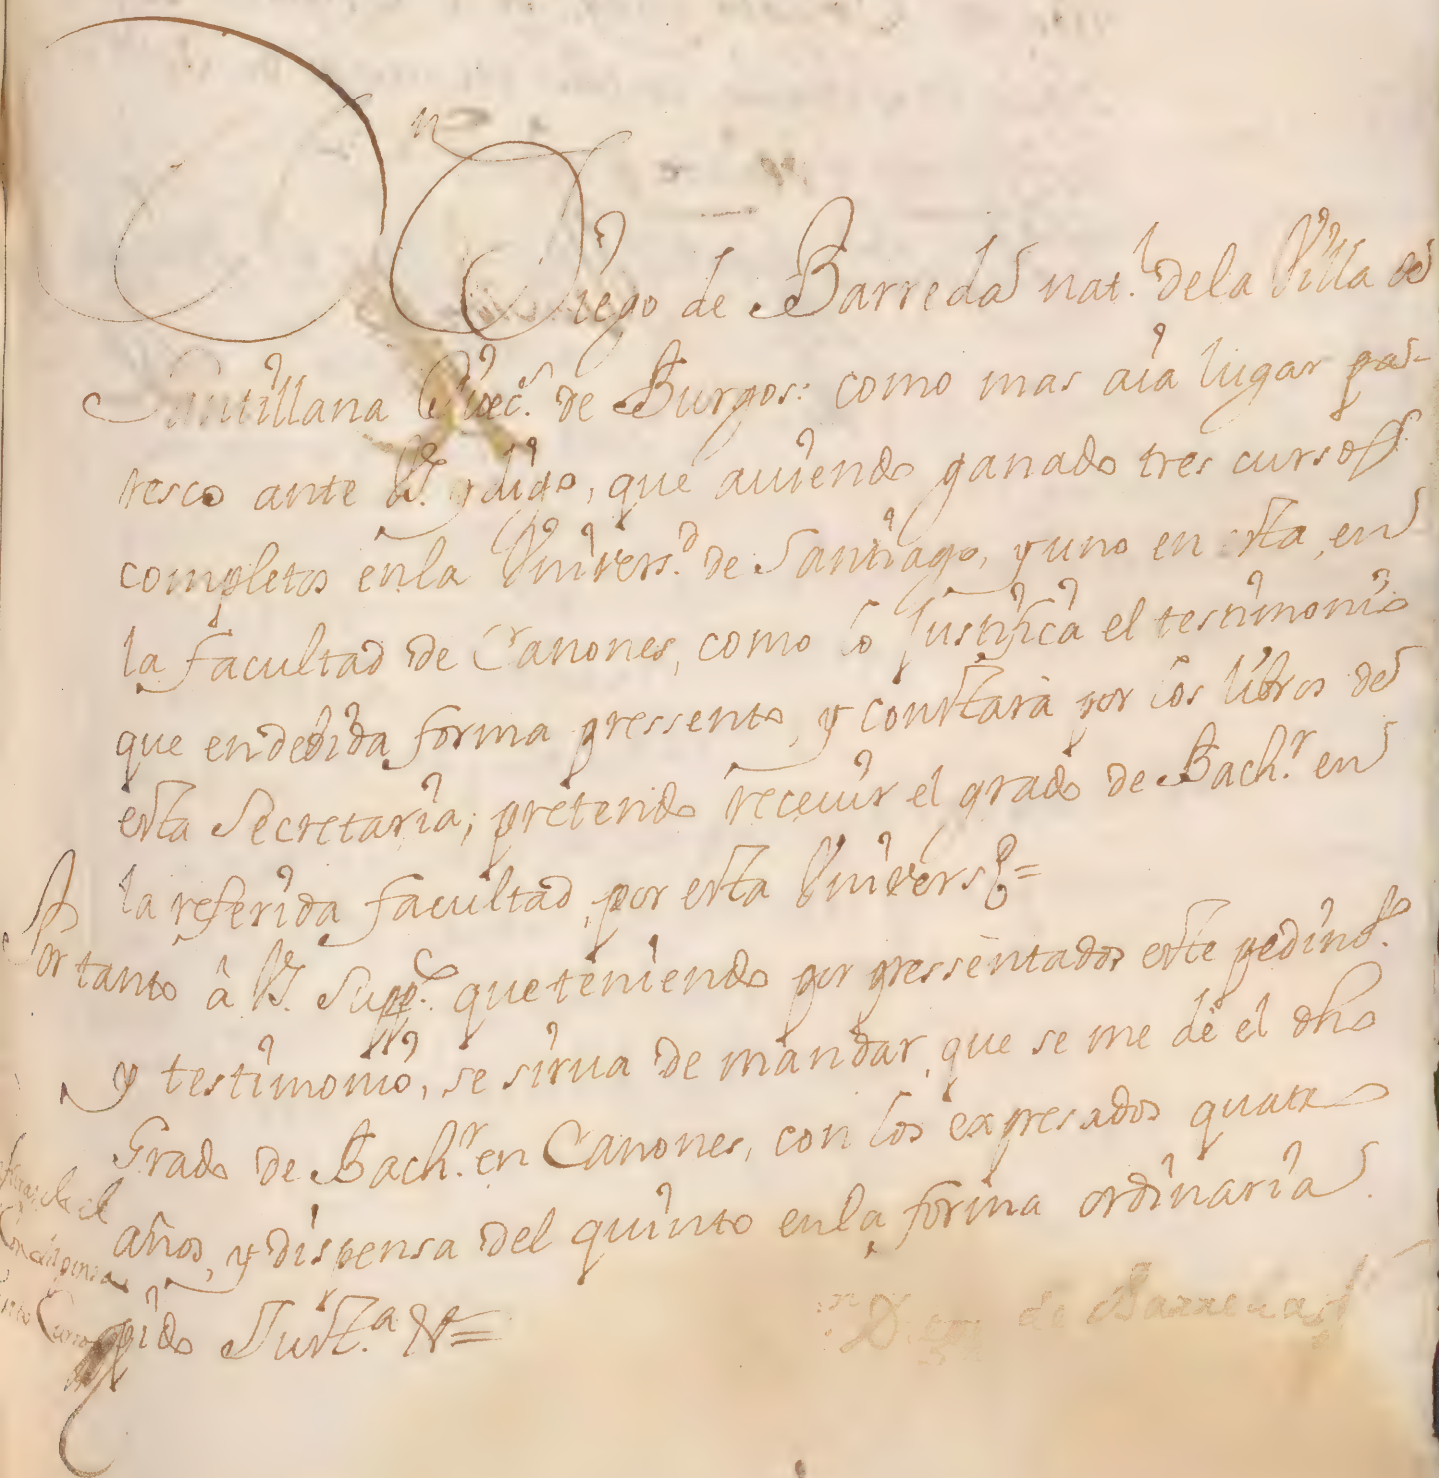 Dn Diego de Barreda nat.l dela Villa de
Santillana Diœc.s de Burgos: como mas aia lugar pa-
resco ante V. y digo, que auiendo ganado tres cursos
completos enla Vnivers.d de Santiago, y uno en esta, en
la facultad de Canones, como lo Justifica el testimonio
que en debida forma pressento, y constarà por los libros de
esta Secretaria; pretendo receuir el grado de Bach.r en
la referida facultad, por esta Vnivers.d =
Por tanto â V. Supp.co que teniendo por pressentados este pedim.to
y testimonio, se sirua de mandar, que se me dè el dho
Grado de Bach.r en Canones, con los expresados quatro
años, y dispensa del quinto enla forma ordinaria.
pido Just.a &=
Dn Diego de Barreda
el
Con dispensa
Curso